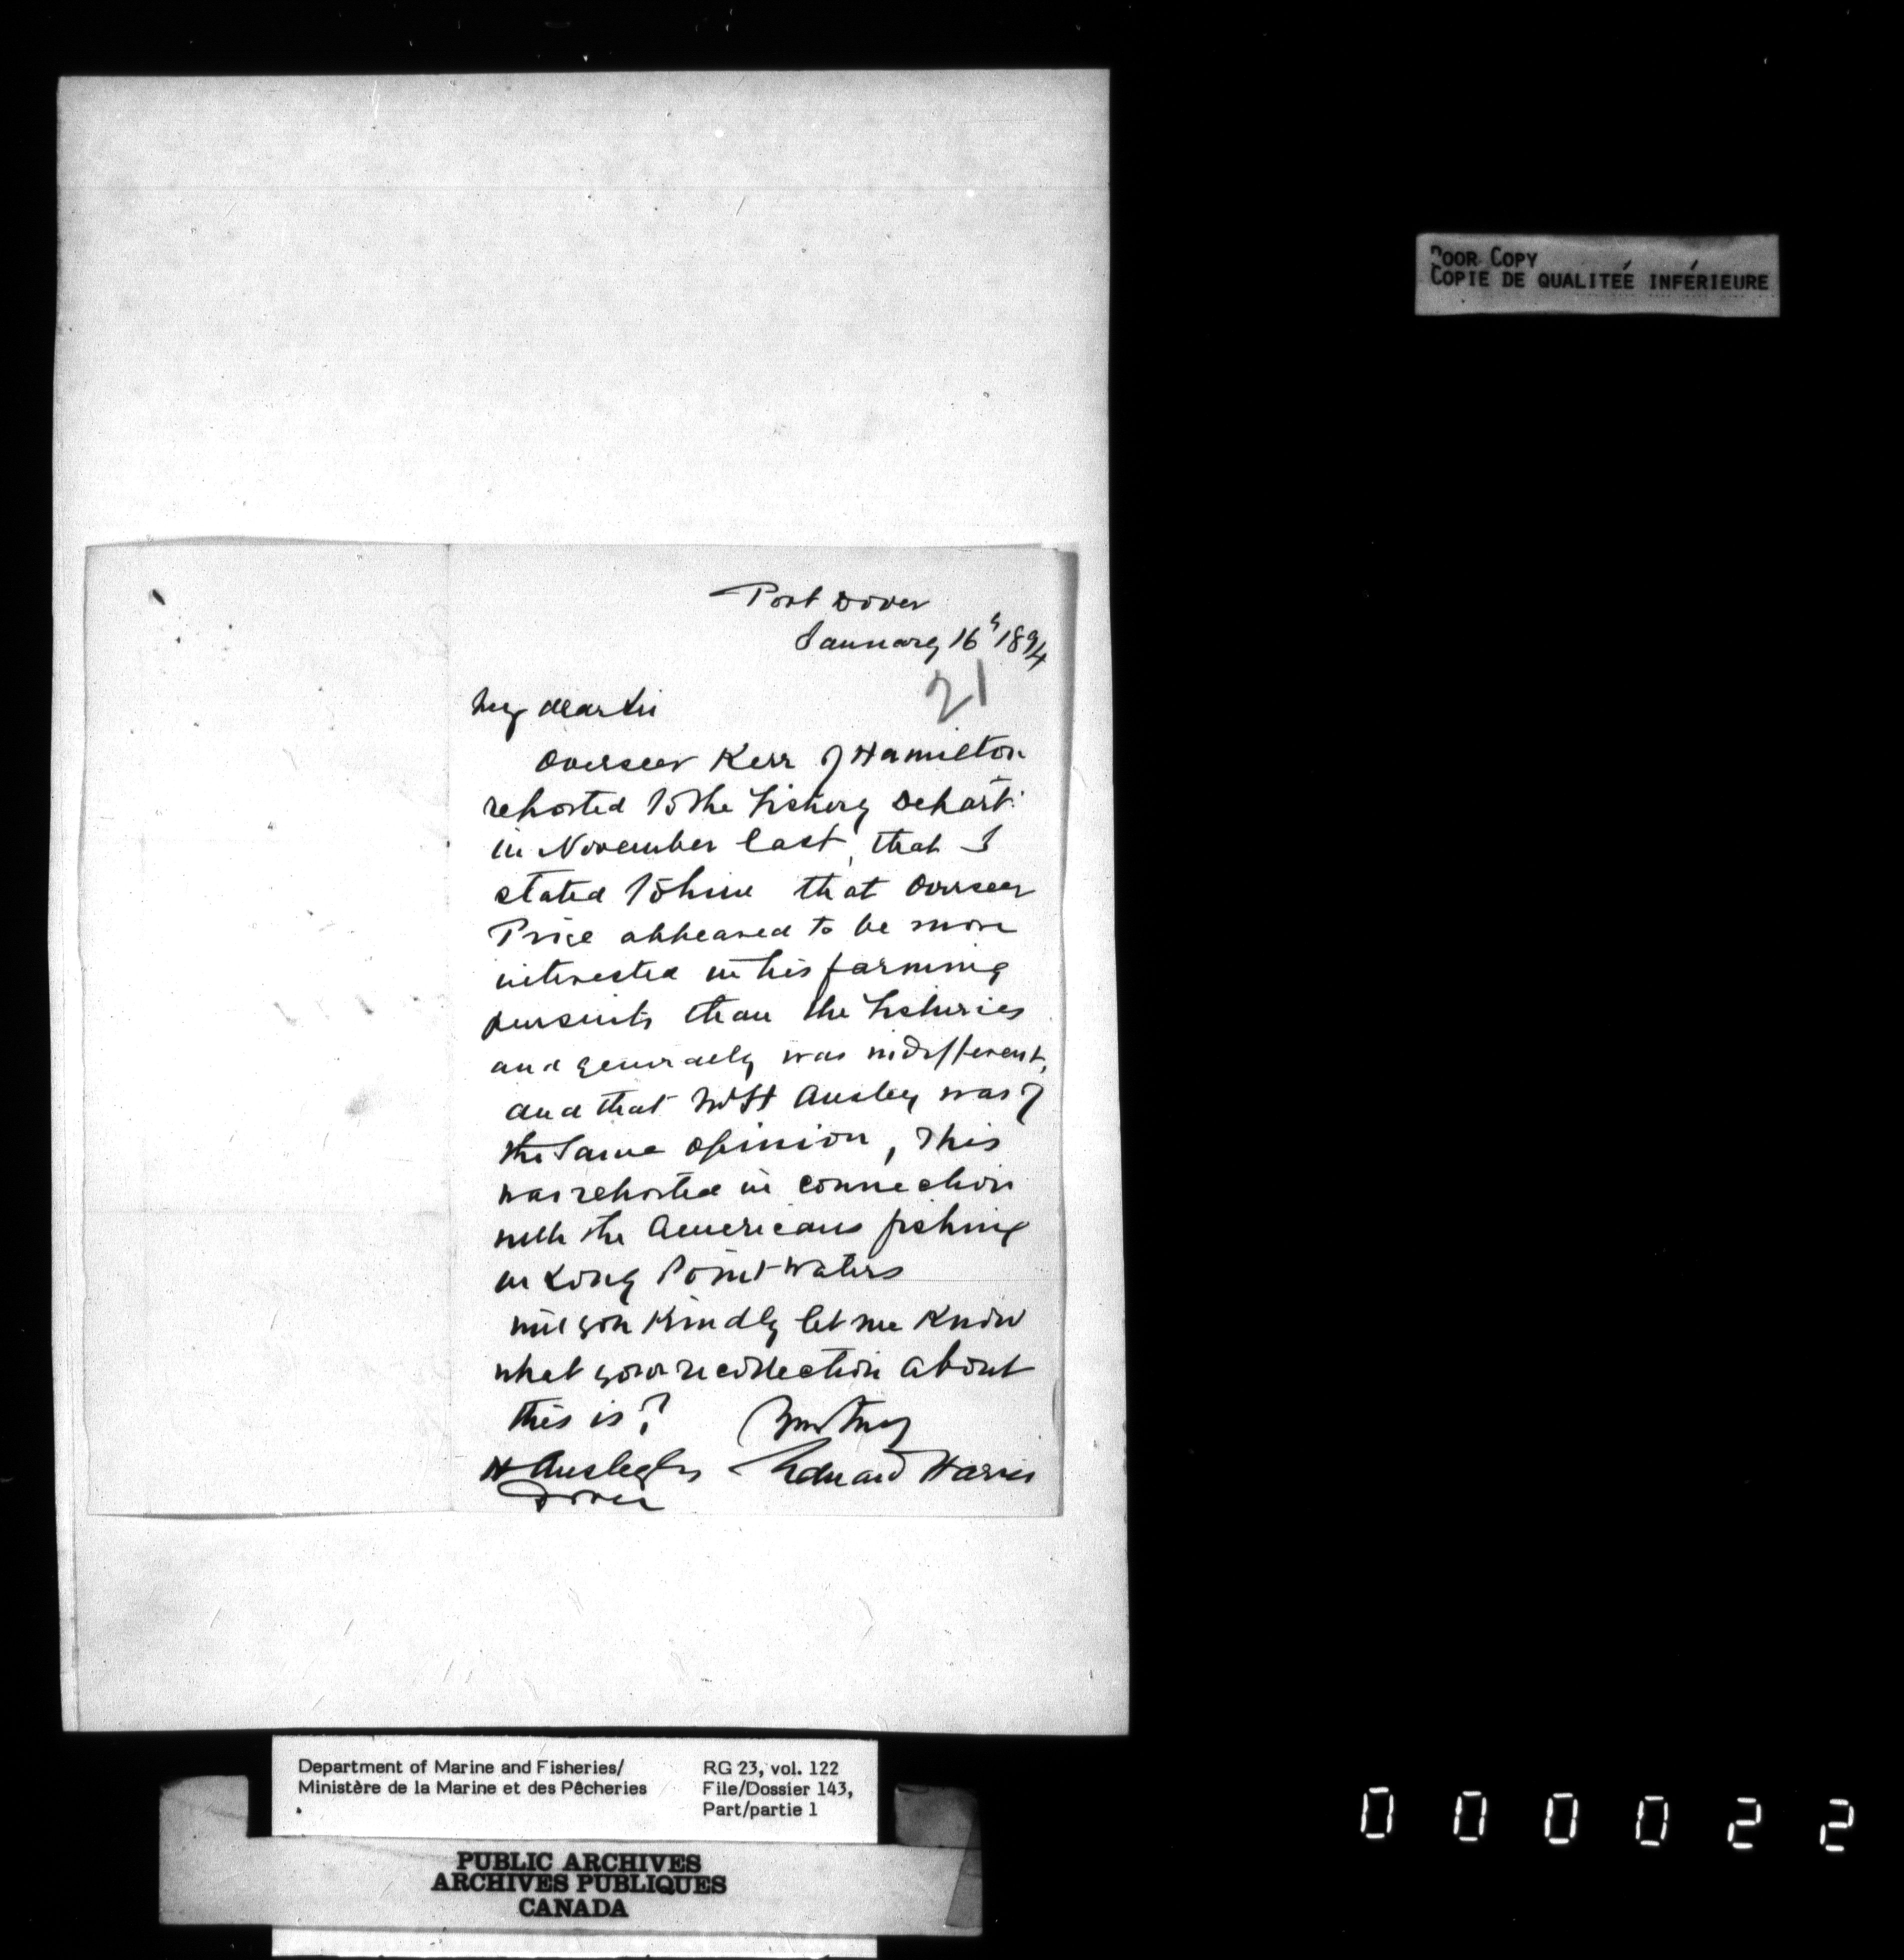 POOR COPY
COPIE DE QUALITEÉ INFÉRIEURE
Port Dover
January 16th 1894
21
My dear Sir
Overseer Kerr of Hamilton
reported to the Fishery Depart:
in November last, that I
stated to him that Overseer
Price appeared to be more
interested in his farming
pursuits than the Fisheries
and generally was indifferent,
and that Mr H Ansley was of
the same opinion, This
was reported in connection
with the Americans fishing
in Long Point waters
will you kindly let me know
what your recollection about
this is? Yours truly
H Ansley Esq Edward Harris
Dover
Department of Marine and Fisheries/ RG 23, vol. 122
Ministère de la Marine et des Pêcheries File/Dossier 143,
Part/partie 1
PUBLIC ARCHIVES
ARCHIVES PUBLIQUES
CANADA
000022